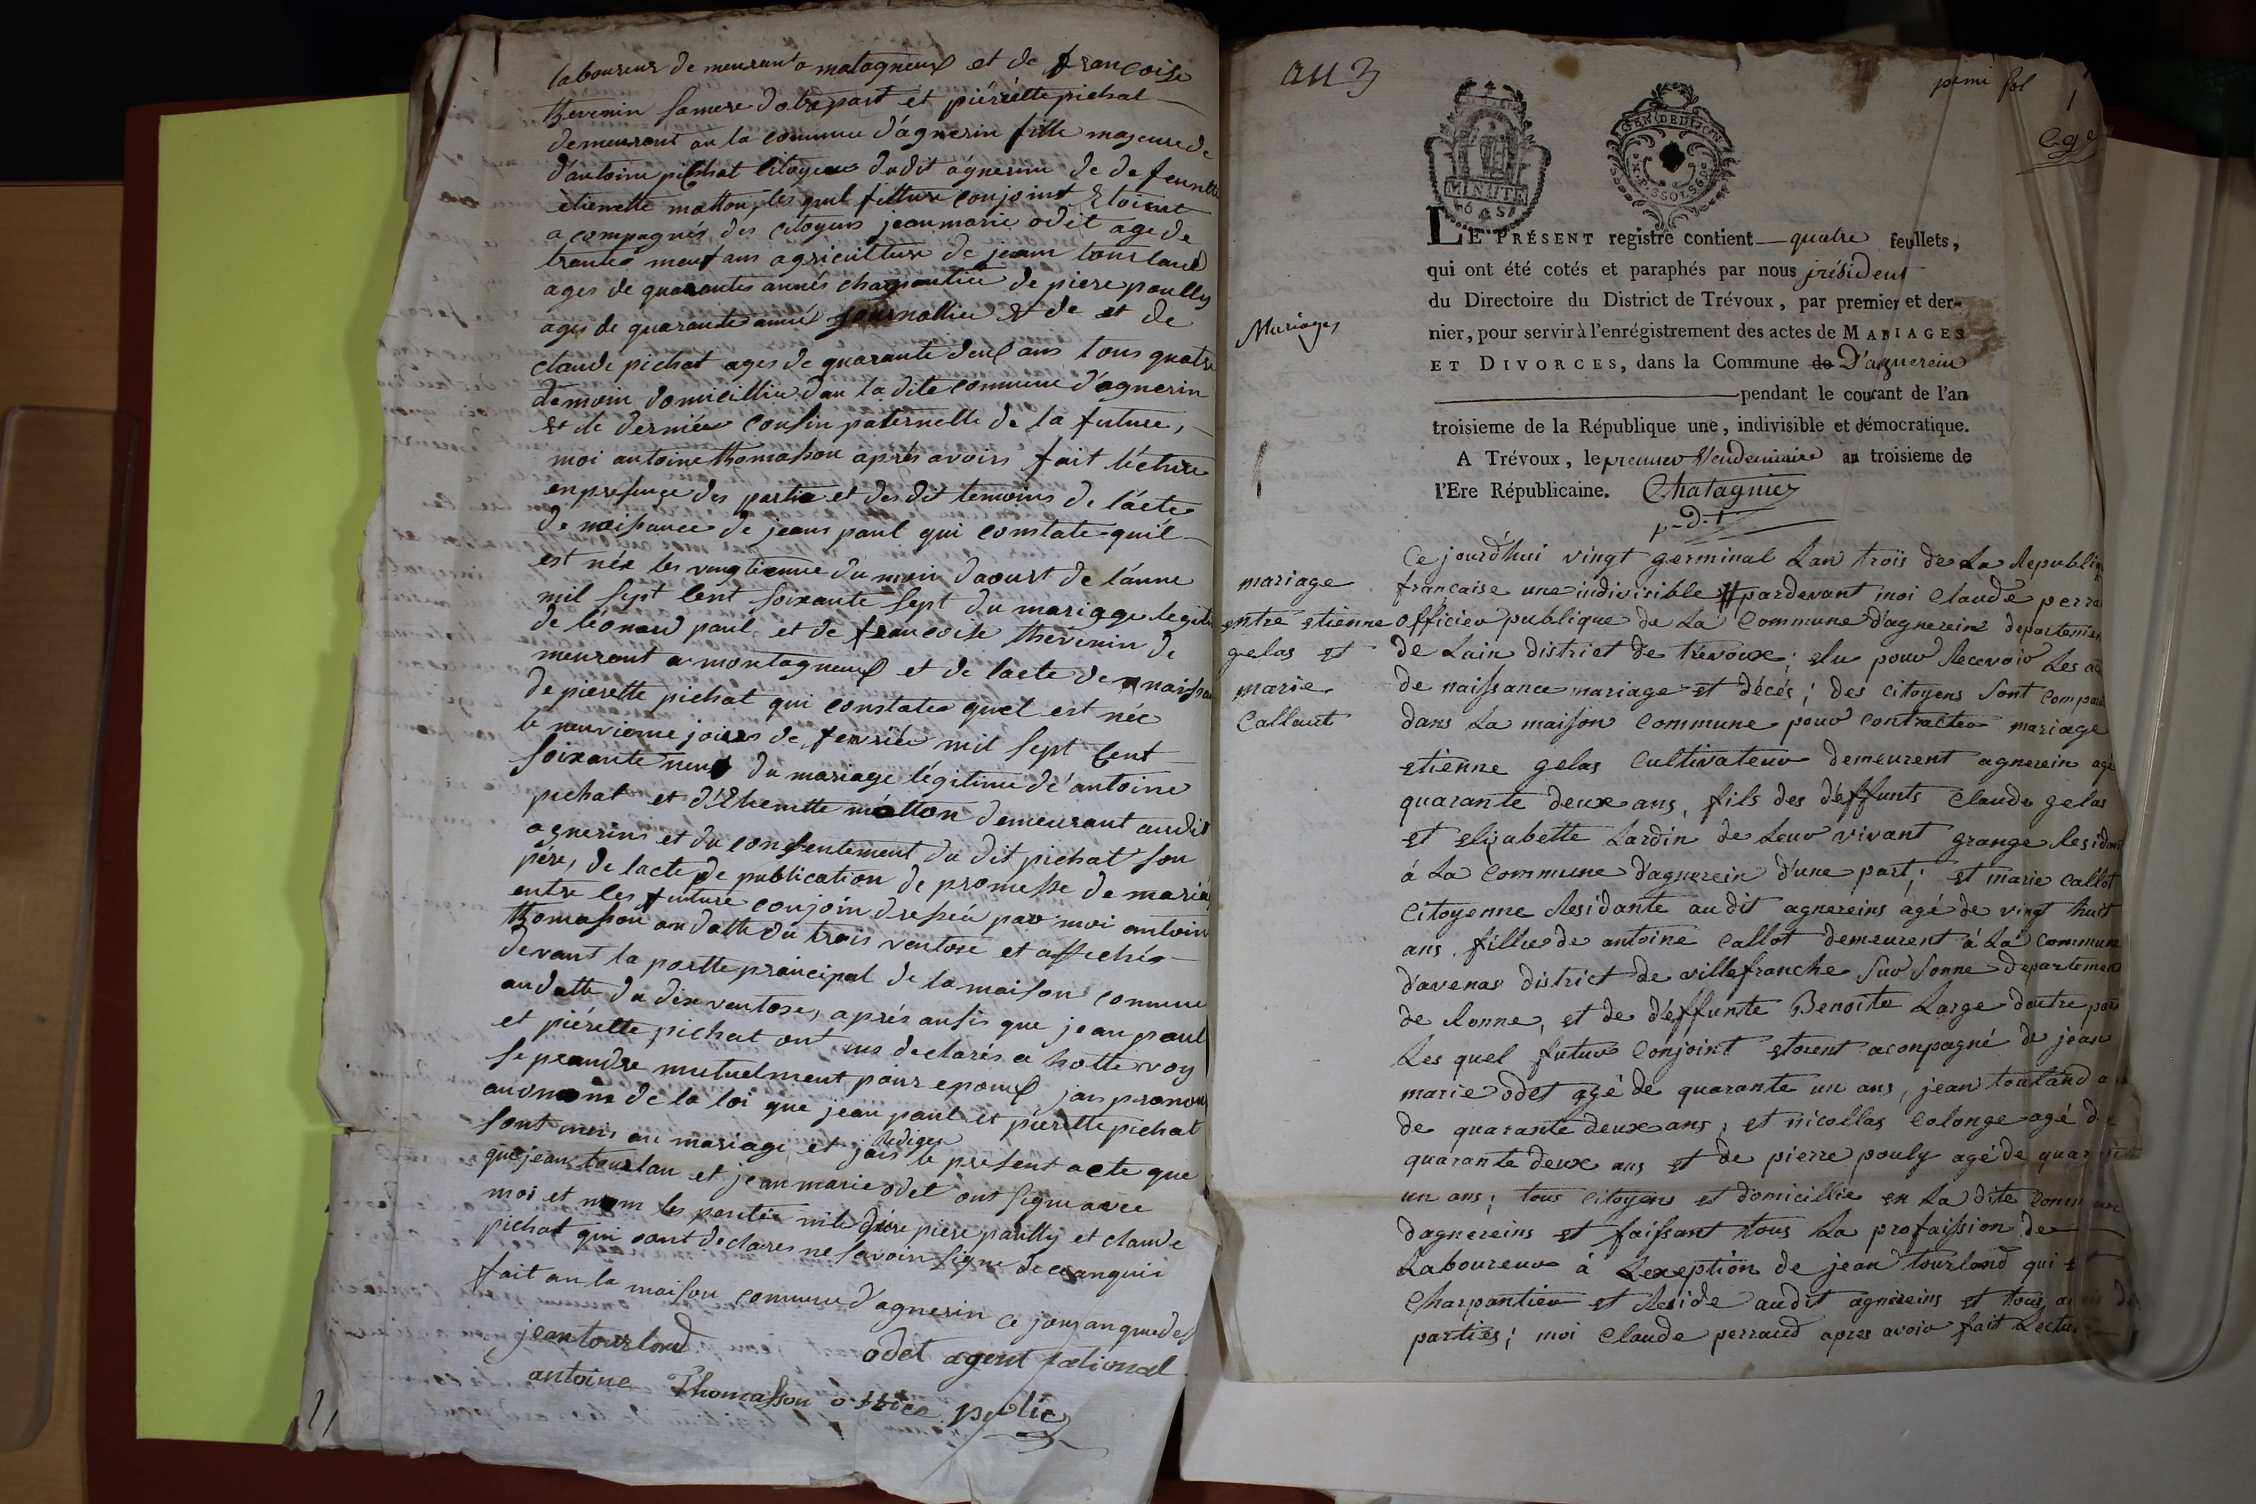 laboureur de meurant a matagneux et de francoise
thevenin samere dotrepart et piérrette pichat
demeurant an la commune d'agnerin fille majeure de
d'antoine pichat citoyen dudit agnerin de defeunte
etienette matton, les quel futture conjoint Etoient
a compagnés des citoyens jean marie odet age de
trante neuf ans agriculture de jean tourland
ages de quarantes annés charpantier de piere poully
ages de quarante anné journallier et de et de
claude pichat ages de quarante deux ans tous quatre
demoin domicillier dan la dite commune d'agnerin
et le dernier cousin paternelle de la future,
moi antoine thomasson aprés avoirs fait lécture
en presence des partie et des dit temoins de l'acte
de naissance de jean paul qui constate quil
est née les vingtieme du moin daoust de l'anne
mil sept cent soixante sept du mariage legiti
de léonard paul et de francoise thevenin de
meurant a montagneux et de lacte de naissan
de pierette pichat qui constate quel est née
le neuvieme jours de fevrier mil sept cent
soixante neuf du mariage légitime dé antoine
pichat et d'Ethenette matton demeurant audit
agnerins et du consentement du dit pichat son
pére, de lacte de publication de promesse de maria
entre les future conjoin dressée par moi antoin
thomasson an datte du trois ventose et affichés
devant la portte principal de la maison commune
an datte du dix ventose, aprés ausis que jean paul
et piérette pichat ont us declarés a hotte voy
se prandre mutuelment pour epoux jais pronon
aunom de la loi que jean paul et pierette pichat
sont unis an mariage et jais rediger le present acte que
que jean tourlan et jean marie odet ont signe avec
moi et nom les partie ni le dire piere poully et claude
pichat qui sont declares ne savoir signe de ce anquis
fait an la maison commune d'agnerin ce jour an que de
jean tourland
odet agent national
antoine Thomasson officier public
an 3
premi fol
1
Mariages
MINUTE
LE PRÉSENT registre contient quatre feullets,
qui ont été cotés et paraphés par nous président
du Directoire du District de Trévoux, par premier et der-
nier, pour servir à l'enrégistrement des actes de MARIAGES
ET DIVORCES, dans la Commune de D'agnerein
pendant le courant de l'an
troisieme de la République une, indivisible et démocratique.
A Trévoux, le premier Vendemiaire an troisieme de
l'Ere Républicaine. Chatagnier
p.d.t
mariage
entre etienne
gelas et
marie
Callaut
Ce jourd'hui vingt germinal Lan trois de La Republi
française une indivisible pardevant moi Claude perra
officier publique de La Commune d'agnerein departemen
de Lain district de trévoux; elu pour Recevoir Les ac
de naissance mariage et décés; des citoyens sont compar
dans La maison commune pour contracter mariage
etienne gelas cultivateur demeurent agnerein agé
quarante deux ans, fils des déffunts Claude gelas
et elizabette Lardin de Leur vivant grange Residant
à La commune d'agnerein d'une part; et marie callot
citoyenne Residante au dit agnereins agé de vingt huit
ans fille de antoine callot demeurent à La commune
d'avenas district de villefranche Sur Sonne departement
de Ronne, et de déffunte Benoite Large dautre part
Les quel futur conjoint etoient aconpagné de jean
marie odet agé de quarante un ans, jean tourland a
de quarante deux ans; et nicollas colonge agé de
quarante deux ans et de pierre pouly agé de quarante
un ans; tous citoyens et domicillié en La dite commune
dagnereins et faissant tous La profaission de
Laboureur à Lexeption de jean tourland qui et
Charpantier et Reside audit agnereins et tous amis de
parties; moi Claude perraud apres avoir fait Lectu